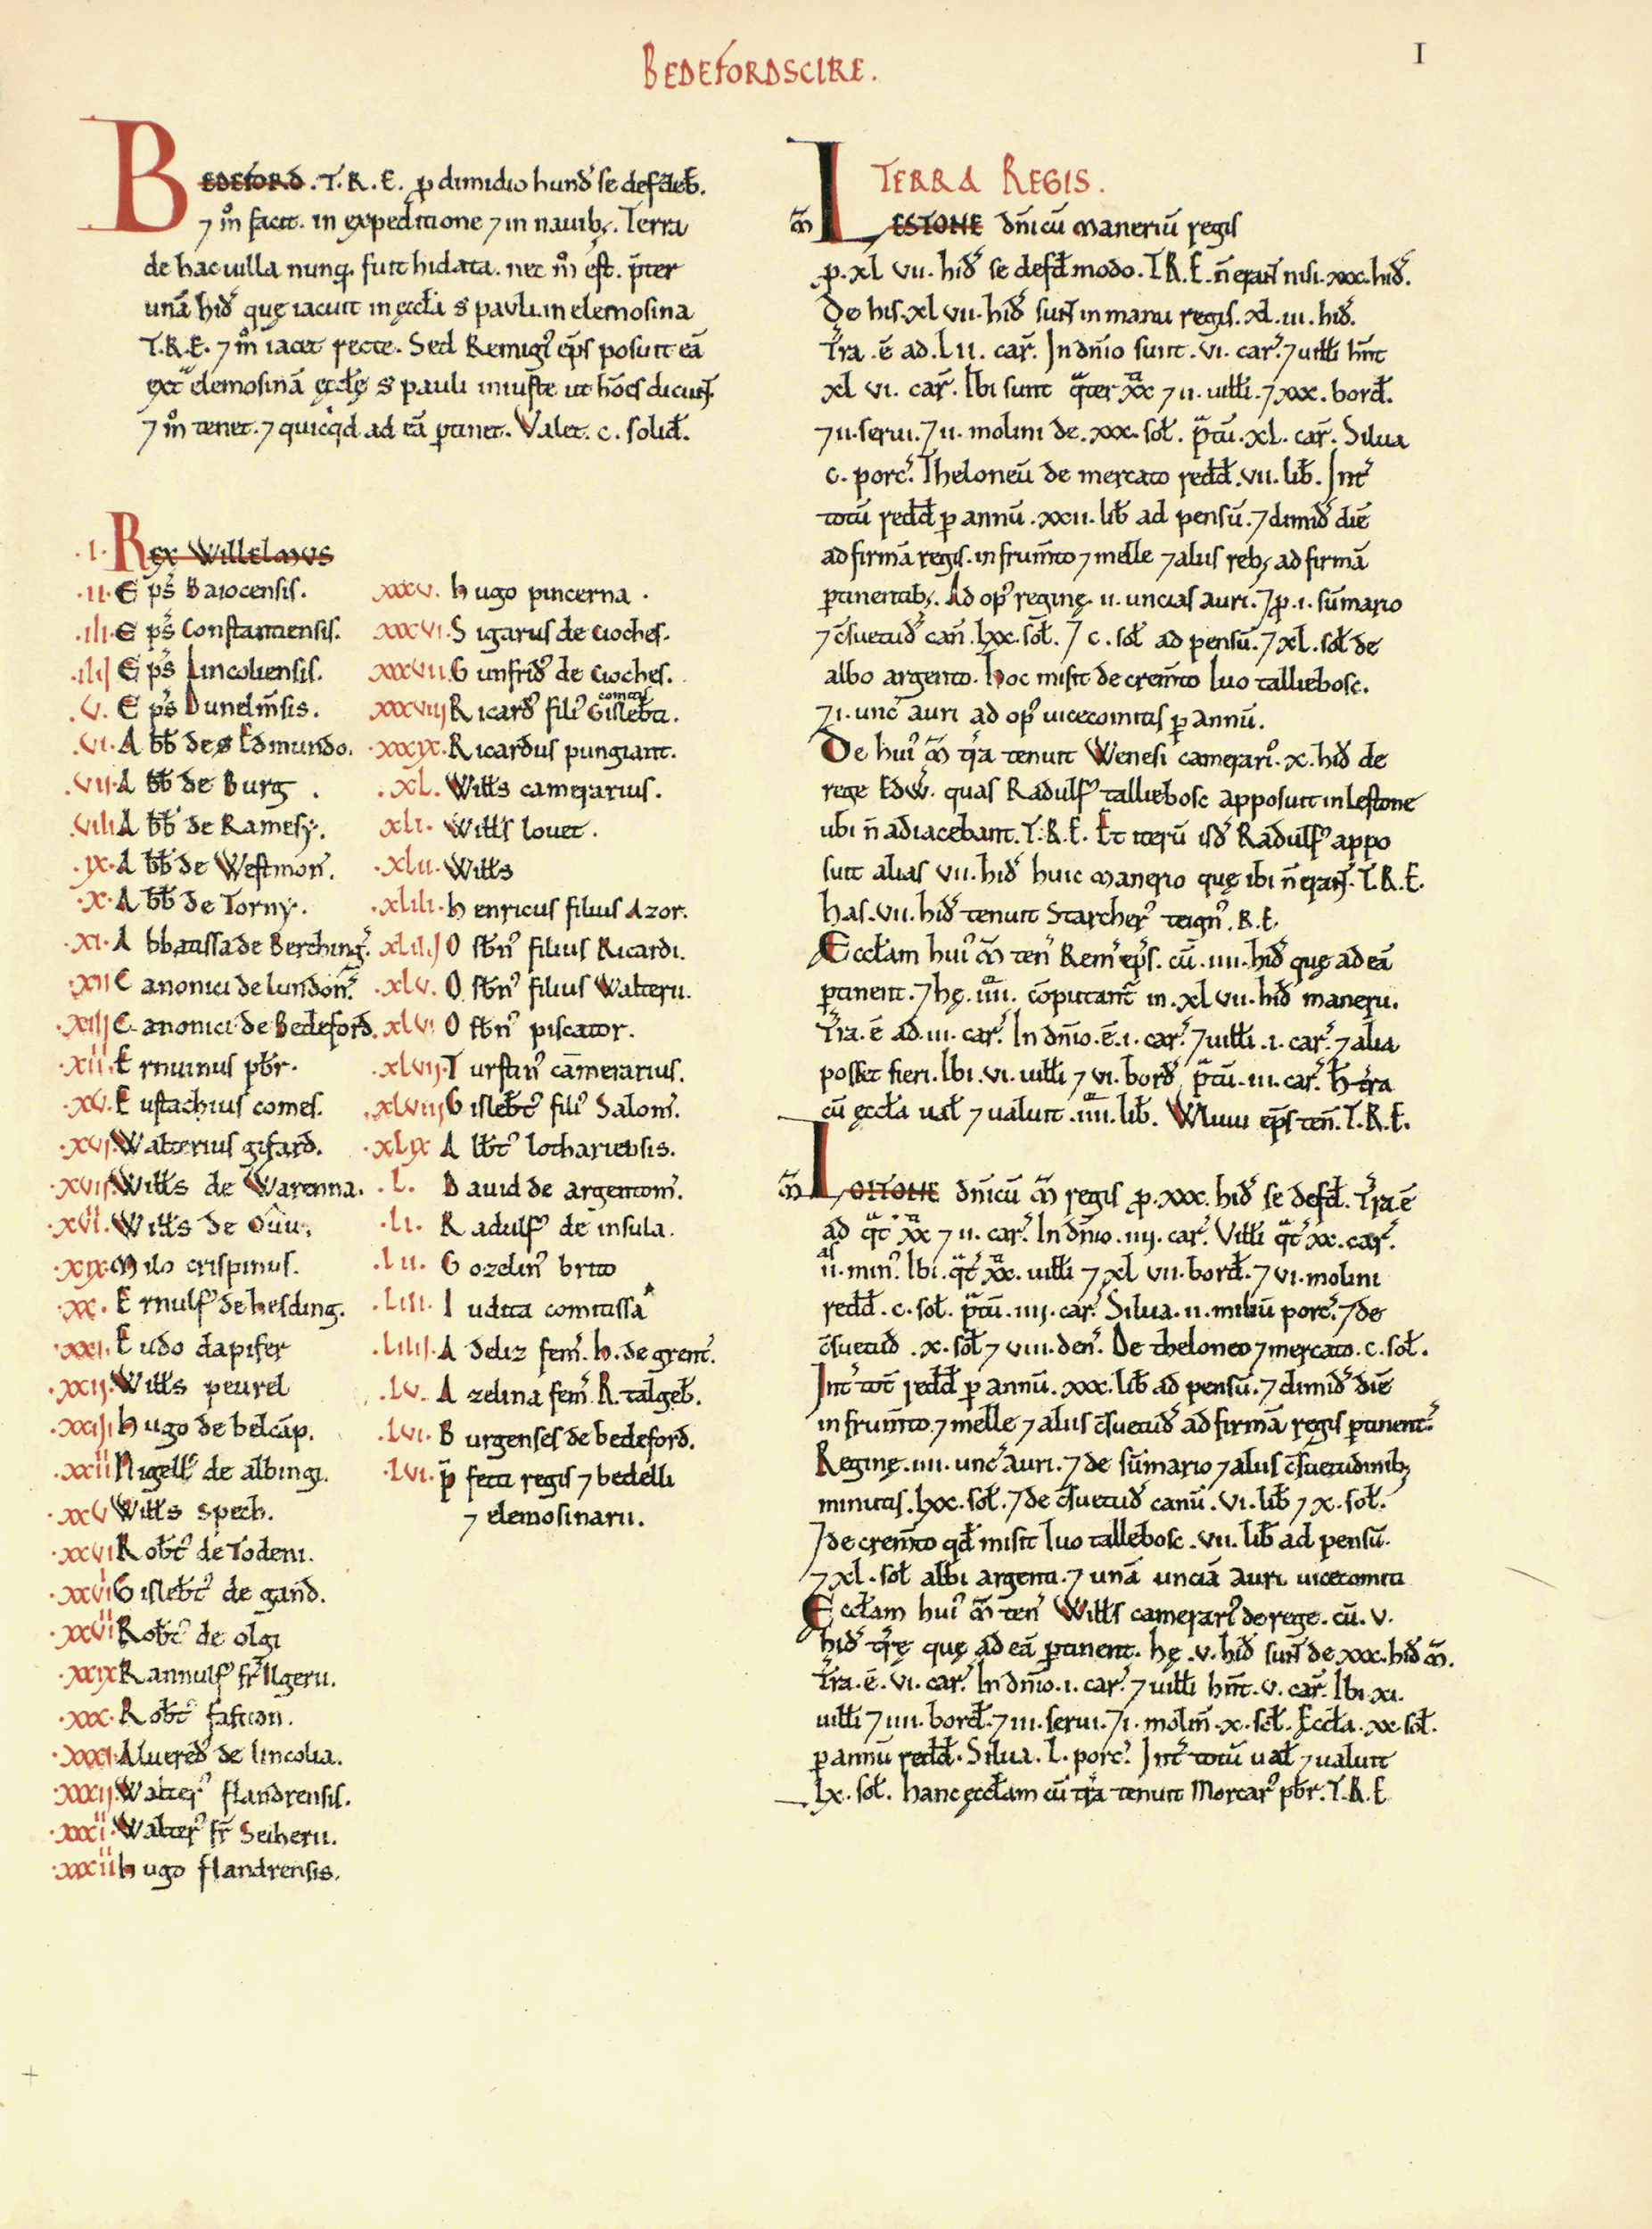 BEDEFORDSCIRE.
I
BEDEFORD. T.R.E. ꝓ dimidio hund̛ se defdeb̄.
⁊ m̊ facit. in expeditione ⁊ in nauibꝫ. Terra
de hac uilla nunq̨. fuit hidata. nec m̊ est. p̄ter
unā hid̛ quę iacuit in ęccłi s̛ pauli in elemosina
T.R.E. ⁊ m̊ iacet recte. Sed Remigi᷒ ep̄s posuit eā
ext̛ elemosinā ęcclę s̛ pauli iniuste ut hōes dicunt̛.
⁊ m̊ tenet. ⁊ quicq̇d ad eā ꝑtinet. Valet. c. solid̛.
.I. Rex Willelmus
.II. Ep̄s Baiocensis.
.III. Ep̄s Constantiensis.
.IIII. Ep̄s Lincoliensis.
.V. Ep̄s Dunelm̄sis.
.VI. Abb̄ de s Edmundo.
.VII. Abb̄ de Burg.
.VIII. Abb̄ de Ramesy.
.IX. Abb̄ de Westmon̛.
.X. Abb̄ de Torny.
.XI. Abbatissa de Berching̛.
.XII. Canonici de Lundon̛.
.XIII. Canonici de Bedeford.
.XIIII. Ernuinus pb̄r.
.XV. Eustachius comes.
.XVI. Walterius gifard.
.XVII. Witłs de Warenna.
.XVIII. Witłs de Ou.
.XIX. Milo crispinus.
.XX. Ernulf᷒ de hesding.
.XXI. Eudo dapifer
.XXII. Witłs peurel
.XXIII. hugo de belcāp.
.XXIIII. Nigell᷒ de albingi.
.XXV. Witłs spech.
.XXVI. Rob̄t᷒ de Todeni.
.XXVII. Gisleb̄t᷒ de gand.
.XXVIII. Rob̄t᷒ de olgi
.XXIX. Rannulf᷒ fr̄ Ilgerii.
.XXX. Rob̄t᷒ fafiton.
.XXXI. Aluered᷒ de lincolia.
.XXXII. Walter᷒ flandrensis.
.XXXIII. Walter᷒ fr̄ Seiherii.
.XXXIIII. hugo flandrensis.
XXXV. hugo pincerna.
XXXVI. Sigarus de cioches.
XXXVII. Gunfrid᷒ de cioches.
XXXVIII. Ricard᷒ fili᷒ Gisleb̄ti comitis.
.XXXIX. Ricardus pungiant.
.XL. Witłs camerarius.
.XLI. Witłs louet.
.XLII. Witłs
.XLIII. henricus filius Azor.
.XLIIII. Osb̄n᷒ filius Ricardi.
.XLV. Osb̄n᷒ filius Walterii.
.XLVI. Osb̄n᷒ piscator.
.XLVII. Turstin᷒ cāmerarius.
.XLVIII. Gisleb̄t᷒ fili᷒ Salom̛.
.XLIX. Alb̄t᷒ lothariensis.
.L. Dauid de argentom̛.
.LI. Radulf᷒ de insula.
.LII. Gozelin᷒ brito
.LIII. Iudita comitissa
.LIIII. Adeliz fem̛. h. de grent̛.
.LV. Azelina fem̛. R. talgeb̄.
.LVI. Burgenses de bedeford.
.LVII. p̄fecti regis ⁊ bedelli
⁊ elemosinarii.
TERRA REGIS.
m̄ LESTONE dn̄icū maneriū regis
ꝓ. XL VII. hid̛ se defd̛ modo. T.R.E. n̄ erant̛ nisi. xxx. hid̛.
De his. XL VII. hid̛ sunt̛ in manu regis. XL. III. hid̛.
Tr̄a. ē ad. L II. car̛. In dn̄io sunt. VI. car̛. ⁊ uiłłi hn̄t
XL VI. car̛. Ibi sunt q̃ter xx ⁊ II. uiłłi. ⁊ xxx. bord̛.
⁊ II. serui. ⁊ II. molini de. xxx. soł. p̃tū. XL. car̛. Silua
c. porc̛. Theloneū de mercato redd̛. VII. lib̄. Int̛
totū redd̛ ꝑ annū. XXII. lib̄ ad pensū. ⁊ dimid̛ diē
ad firmā regis. in frum̄to ⁊ melle ⁊ aliis rebꝫ ad firmā
ꝑtinentibꝫ. Ad op᷒ reginę. II. uncias auri. ⁊ ꝓ. I. sūmario
⁊ c̄suetud̛ can̄. Lxx. soł. ⁊ c. soł ad pensū. ⁊ XL. soł de
albo argento. hoc misit de crem̄to Iuo talliebosc.
⁊ I. unc̛ auri ad op᷒ uicecomitis ꝑ annū.
De hui᷒ m̄ tr̃a tenuit Wenesi camerari᷒. X. hid̛ de
rege Edw̛. quas Radulf᷒ talliebosc apposuit in Lestone
ubi n̄ adiacebant. T.R.E. Et iterū isd̛ Radulf᷒ appo
suit alias VII. hid̛ huic manerio quę ibi n̄ erant̛. T.R.E.
has. VII. hid̛ tenuit Starcher᷒ teign᷒. R.E.
Ęccłam hui᷒ m̄ ten̛ Rem̛ ep̄s. cū. IIII. hid̛ quę ad eā
ꝑtinent. ⁊ hę. IIII. cōputant̛ in. XL VII. hid̛ manerii.
Tr̄a. ē ad. III. car̛. In dn̄io. ē. I. car̛. ⁊ uiłłi. I. car̛. ⁊ alia
posset fieri. Ibi. VI. uiłłi ⁊ VI. bord̛ p̃tū. III. car̛. h̄ tr̃a
cū ęccła uał ⁊ ualuit. IIII. lib̄. Wluui ep̄s ten̄. T.R.E.
m̄ LOITONE dn̄icū m̄ regis ꝓ. xxx. hid̛ se defd̛. Tr̄a. ē
ad q̃t̛ xx ⁊ II. car̛. In dn̄io. IIII. car̛. Viłłi q̃t̛ xx. car̛.
II. as min᷒. Ibi. q̃t̛ xx. uiłłi ⁊ XL VII. bord̛. ⁊ VI. molini
redd̛. c. soł. p̃tū. IIII. car̛. Silua. II. miliū porc̛. ⁊ de
c̄suetud̛. X. soł ⁊ VIII. den̛. De theloneo ⁊ mercato. c. soł.
Int̛ tot̄ redd̛ ꝑ annū. xxx. lib̄ ad pensū. ⁊ dimid̛ diē
in frum̄to ⁊ melle ⁊ aliis c̄suetud̛ ad firmā regis ꝑtinent̛.
Reginę. IIII. unc̛ auri. ⁊ de sūmario ⁊ aliis c̄suetudinibꝫ
minutis. Lxx. soł. ⁊ de c̄suetud̛ canū. VI. lib̄ ⁊ X. soł.
⁊ de crem̄to qd̛ misit Iuo tallebosc. VII. lib̄ ad pensū.
⁊ XL. soł albi argenti. ⁊ unā unciā auri uicecomiti
Ęccłam hui᷒ m̄ ten̛ Witłs camerari᷒ de rege. cū. V.
hid̛ tr̄ę quę ad eā ꝑtinent. hę. V. hid̛ sunt̛ de xxx. hid̛ m̄.
Tr̄a. ē. VI. car̛. In dn̄io. I. car̛. ⁊ uiłłi hn̄t. V. car̛. Ibi. XI.
uiłłi ⁊ IIII. bord̛. ⁊ III. serui. ⁊ I. molin̄. X. soł. Ęccła. xx. soł.
ꝑ annū redd̛. Silua. L. porc̛. Int̛ totū uał ⁊ ualuit
Lx. soł. hanc ęccłam cū tr̃a tenuit Morcar᷒ pb̄r. T.R.E